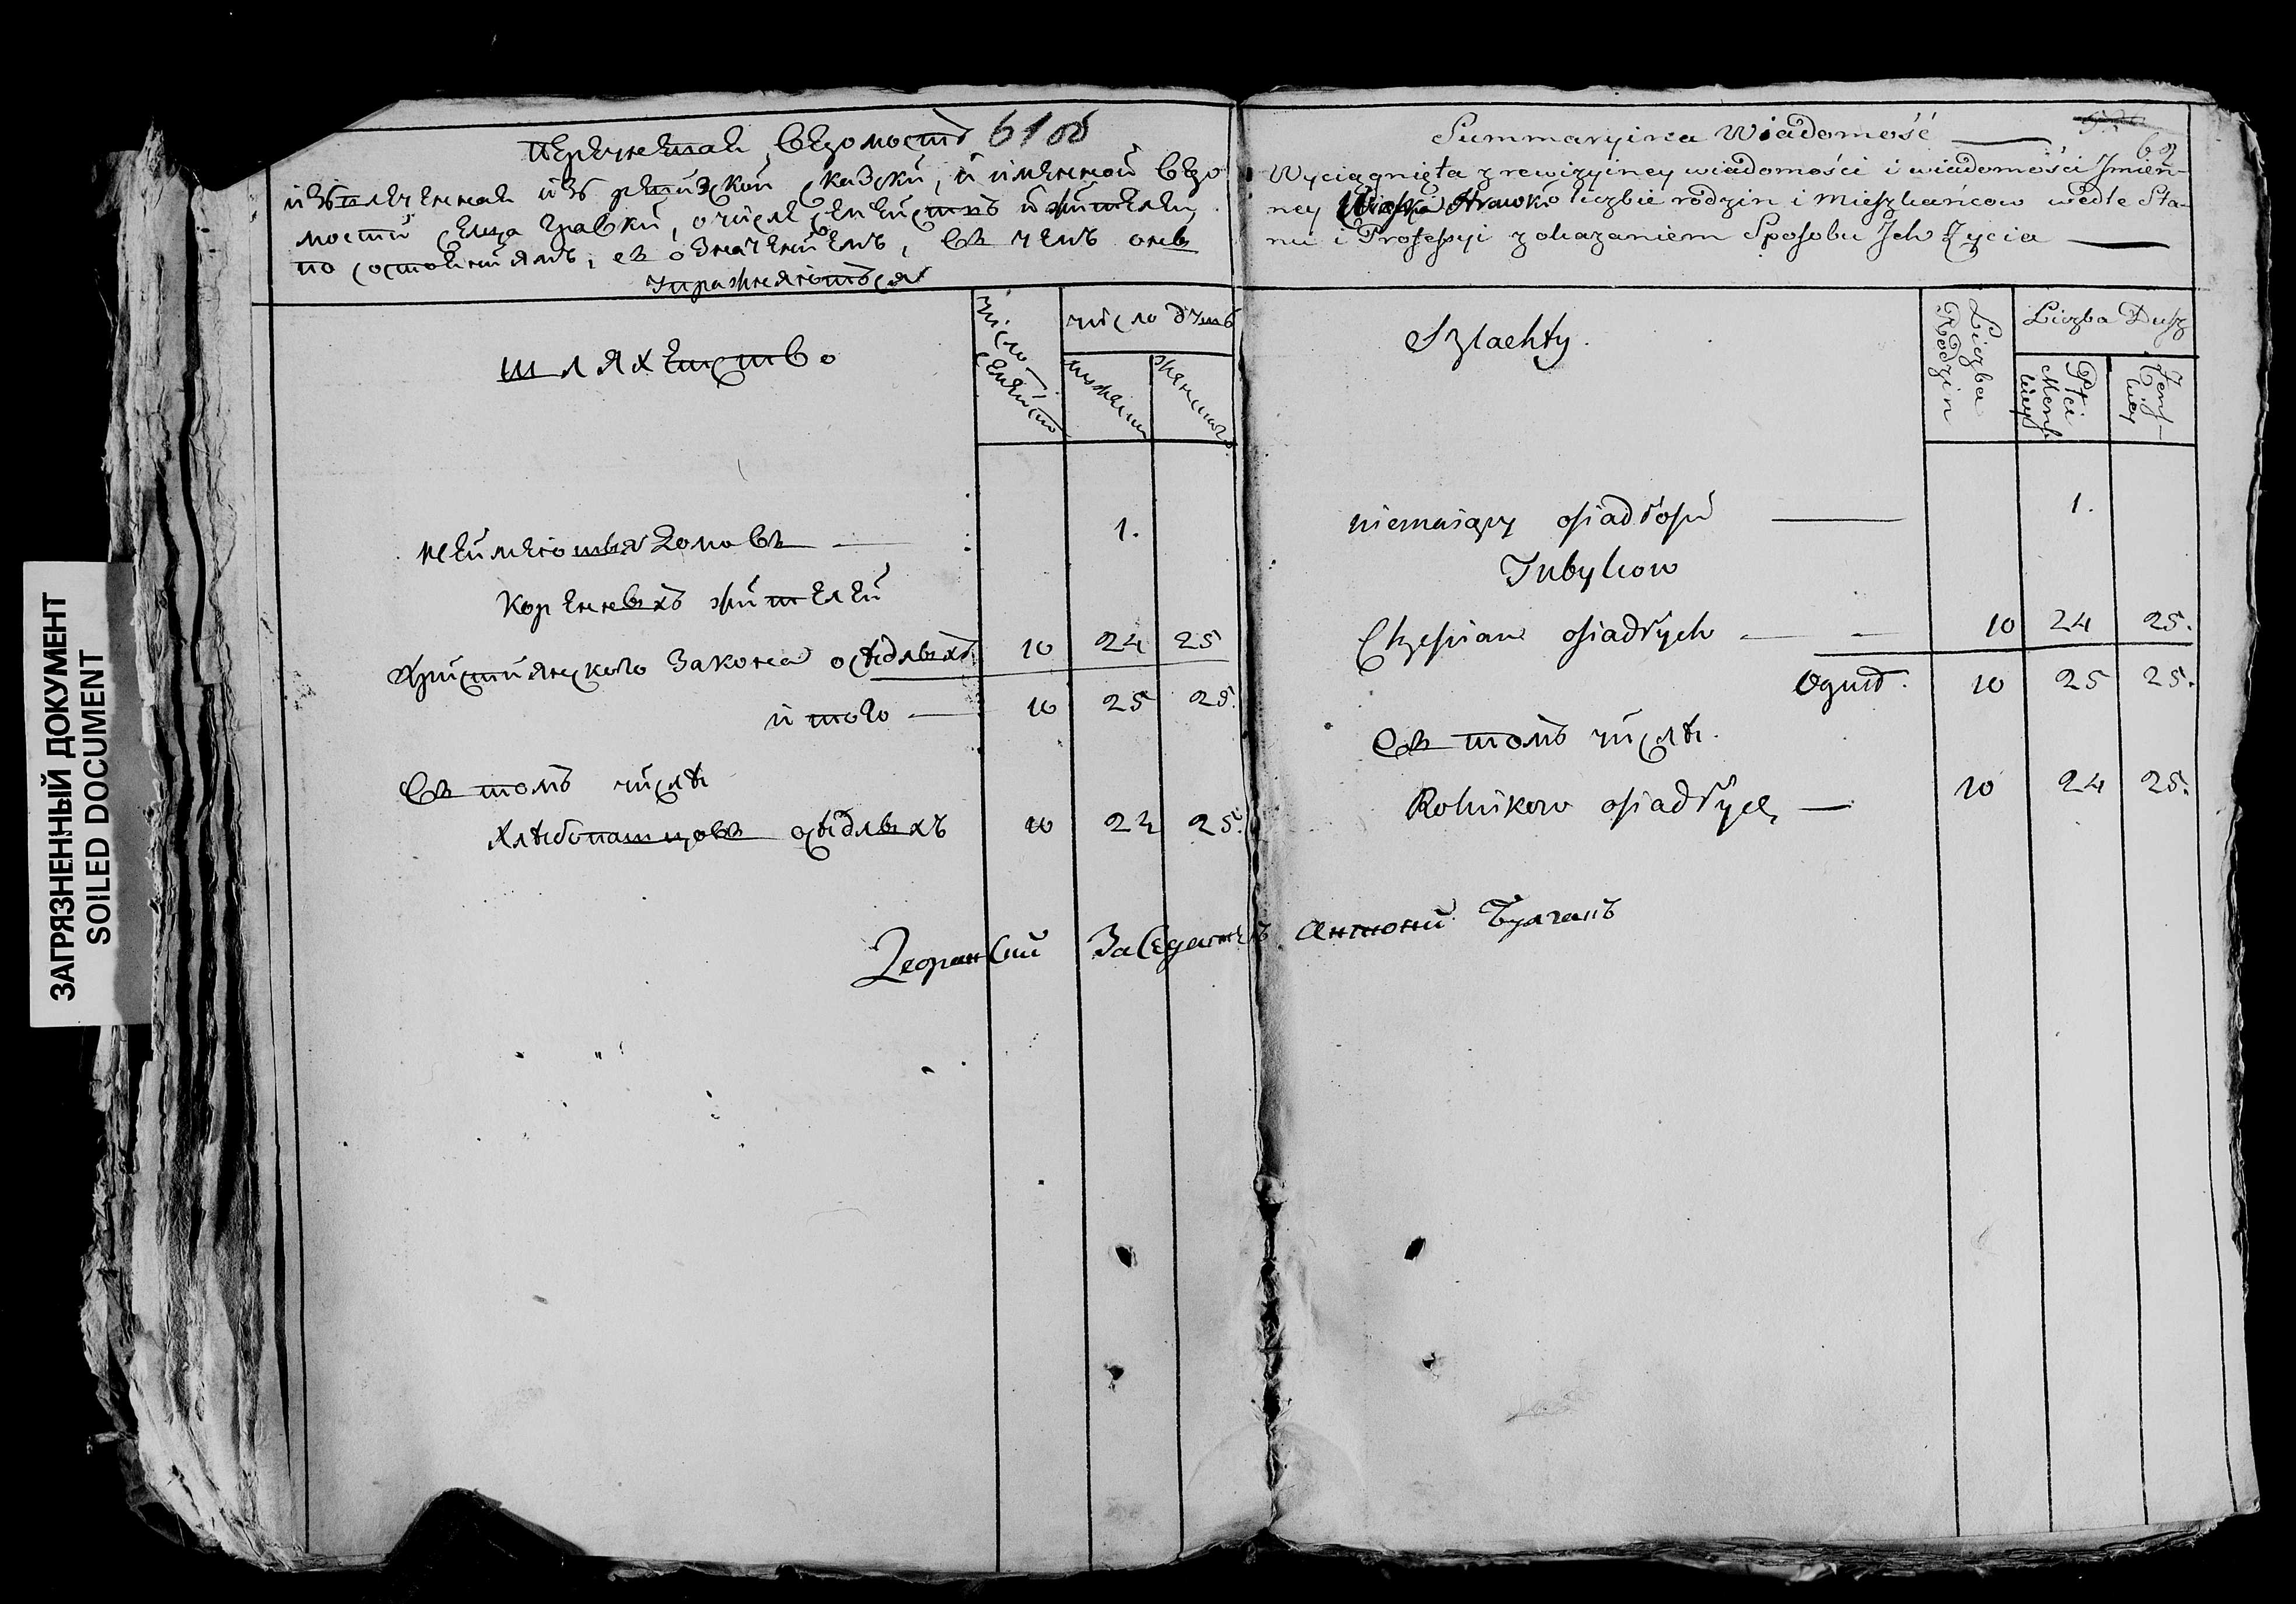 ЗАГРЯЗНЕННЫЙ ДОКУМЕНТ
SOILED DOCUMENT
Перечневая ведомость 61об
извлеченная из ревизской сказки, и именной ведо
мости сельца Гравки, о числе семейств и жителей
по состояниям, съ означениемъ, въ чемъ онѣ
упражняются
число семейств
число душъ
мужеска
женскаго
шляхетство
неимеющия домовъ 1.
коренныхъ жителей
християнского закона осѣдлыхъ 10 24 25
итого 10 25 25.
въ томъ числѣ
хлѣбопашцовъ осѣдлыхъ 10 24 25.
Дворянский Заседатель Антоний Булгакъ
62
Summaryina Wiadomość
Wyciągnięta z rewizyiney wiadomości i wiadomości Jmien-
ney Hrawki o liczbie rodzin i Mieszkańcow wedle Sta-
nu i Professyi z okazaniem Sposobu Jch Zycia
Liczba Rodzin
Liczba Dusz
Płci Mensk-
kiey
Zens-
kiey
Szlachty.
niemaiący osiadłosci 1.
Tubylcow
Chrzescian osiadłych 10 24 25.
Ogułł. 10 25 25.
Въ томъ числѣ.
Rolnikow osiadłych 10 24 25.